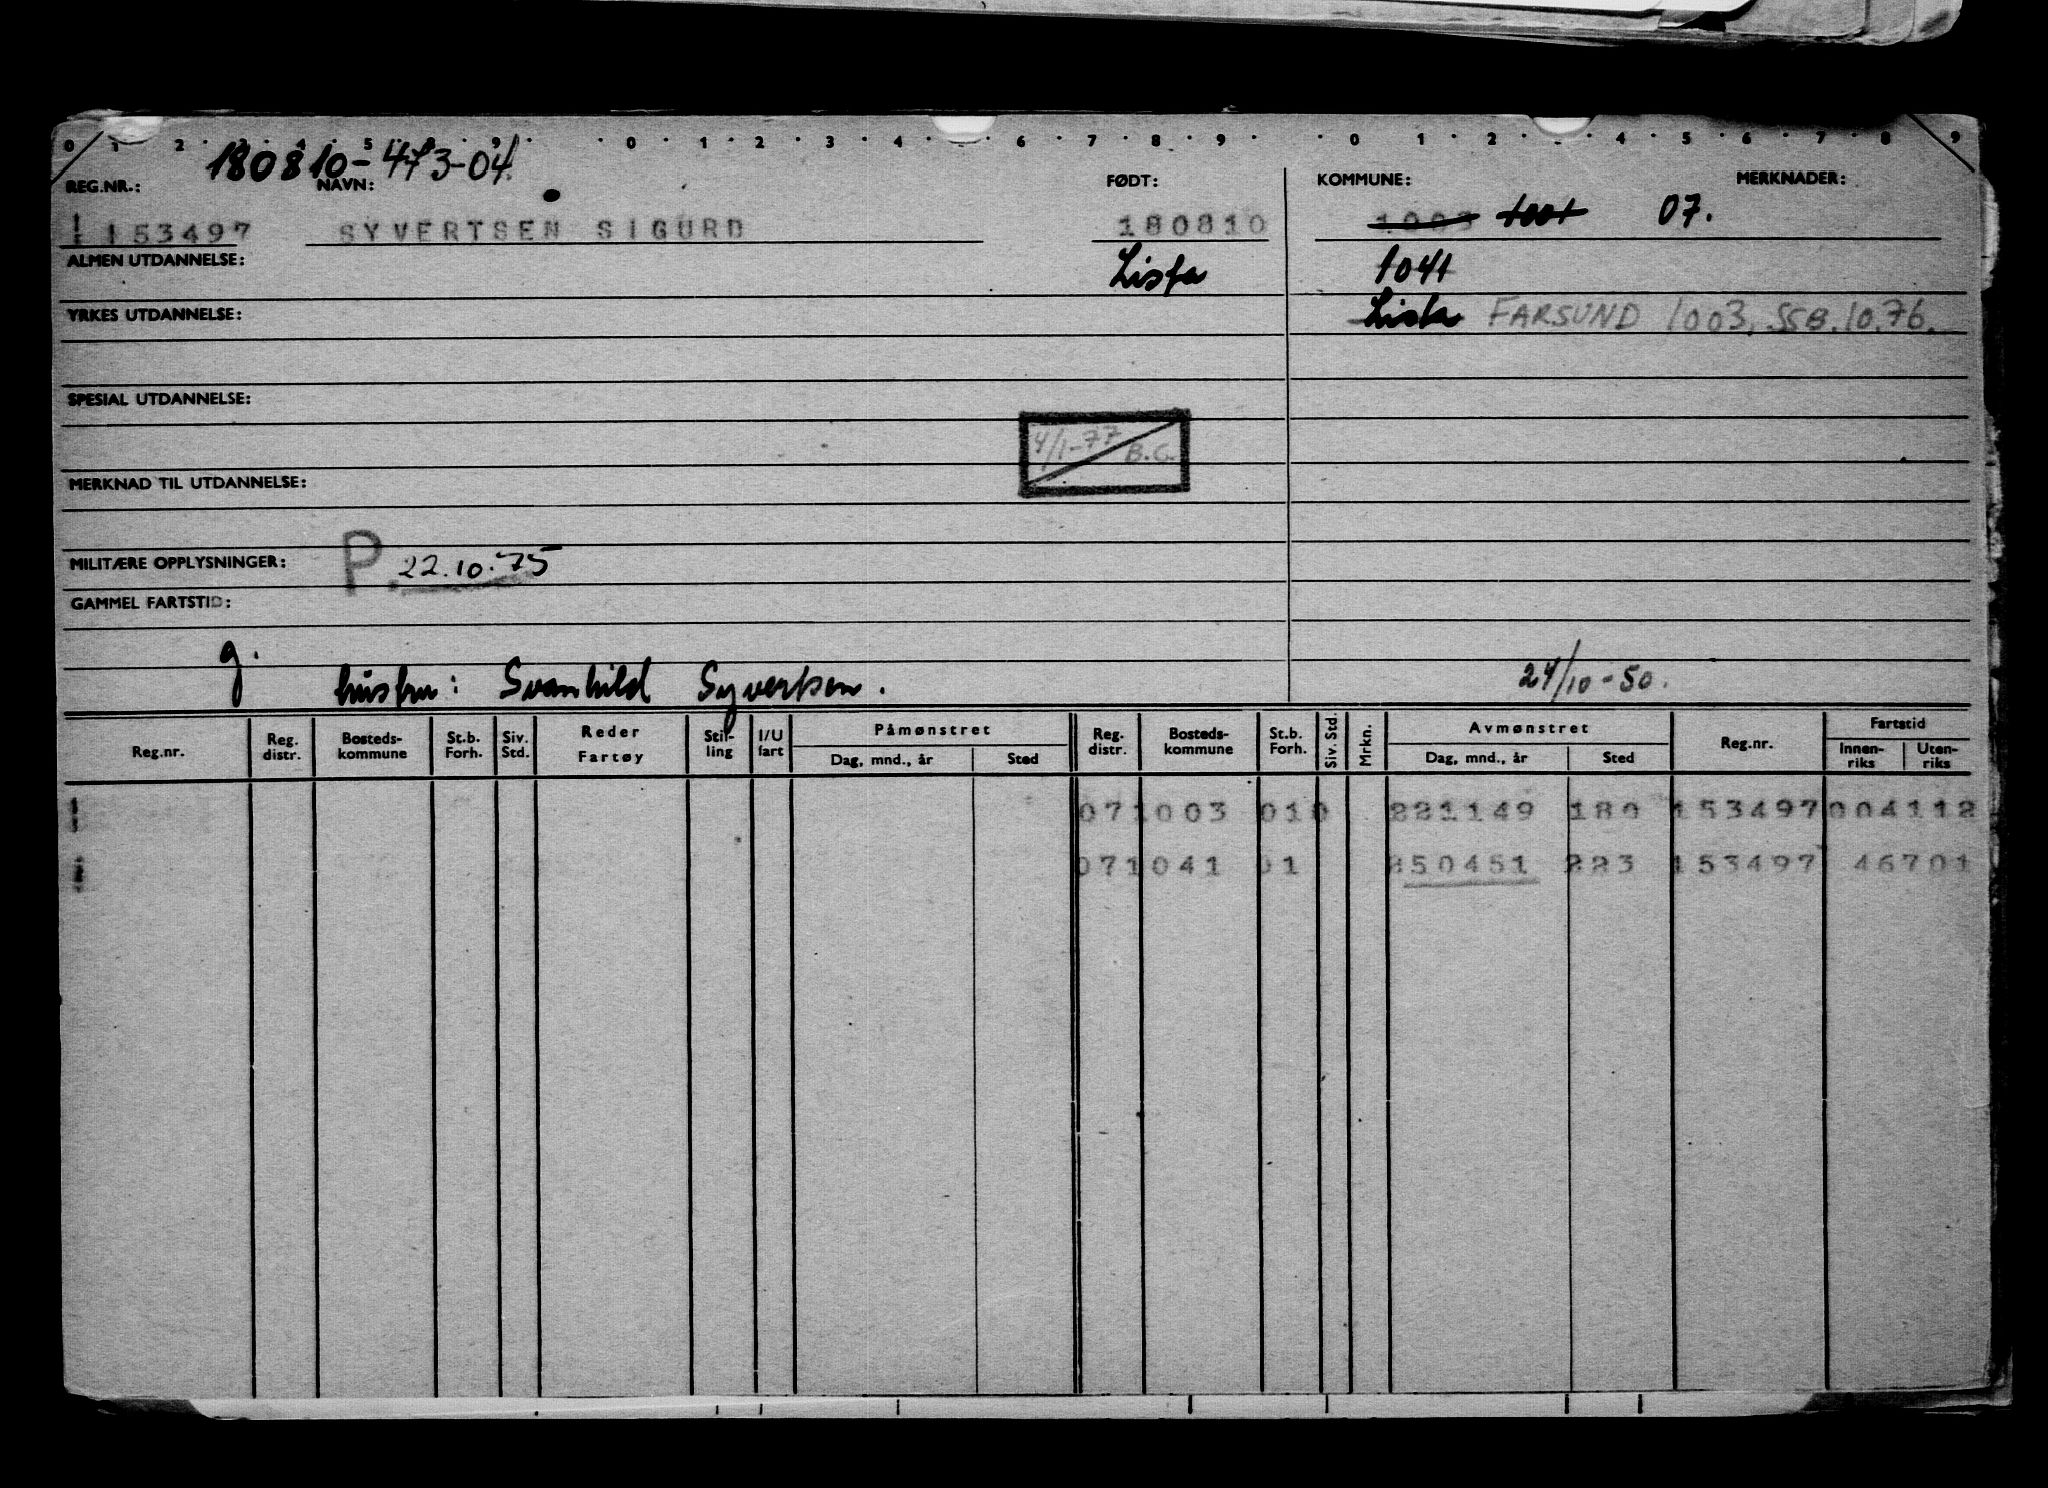 0 1 2 3 4 5 8 9 0 1 2 3 4 6 7 8 9 0 1 2 4 5 6 7 8 9
180810-473-04.
REG.NR.: NAVN: FØDT: KOMMUNE: MERKNADER:
153497 SYVERTSEN SIGURD 180810 1003 1001 07.
ALMEN UTDANNELSE: Lista 1041
YRKES UTDANNELSE: Lista FARSUND 1003. SSB.10.76.
SPESIAL UTDANNELSE:
4/1-77 B.G.
MERKNAD TIL UTDANNELSE:
MILITÆRE OPPLYSNINGER: P. 22.10.75
GAMMEL FARTSTID:
g.
hustru: Svanhild Syvertsen. 24/10-50.
Reg.nr. Reg. distr. Bosteds-kommune St.b. Forh. Siv. Std. Reder Fartøy Stil-ling I/U fart Påmønstret Dag, mnd., år Sted Reg. distr. Bosteds-kommune St.b. Forh. Siv. Std. Mrkn. Avmønstret Dag, mnd., år Sted Reg.nr. Fartstid Innen-riks Uten-riks
071003 010 221149 180 153497 004112
071041 01 250451 223 153497 46701